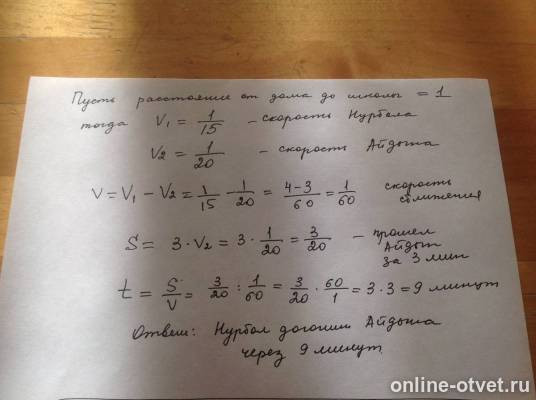 Пусть расстояние от дома до школы = 1
тогда V₁ = 1/15 – скорость Нурбола
V₂ = 1/20 – скорость Айдоша
V = V₁ – V₂ = 1/15 – 1/20 = 4–3/60 = 1/60 скорость сближения
S = 3 · V₂ = 3 · 1/20 = 3/20 – прошел Айдош за 3 мин
t = S/V = 3/20 : 1/60 = 3/20 · 60/1 = 3 · 3 = 9 минут
Ответ: Нурбол догонит Айдоша
через 9 минут.
online-otvet.ru